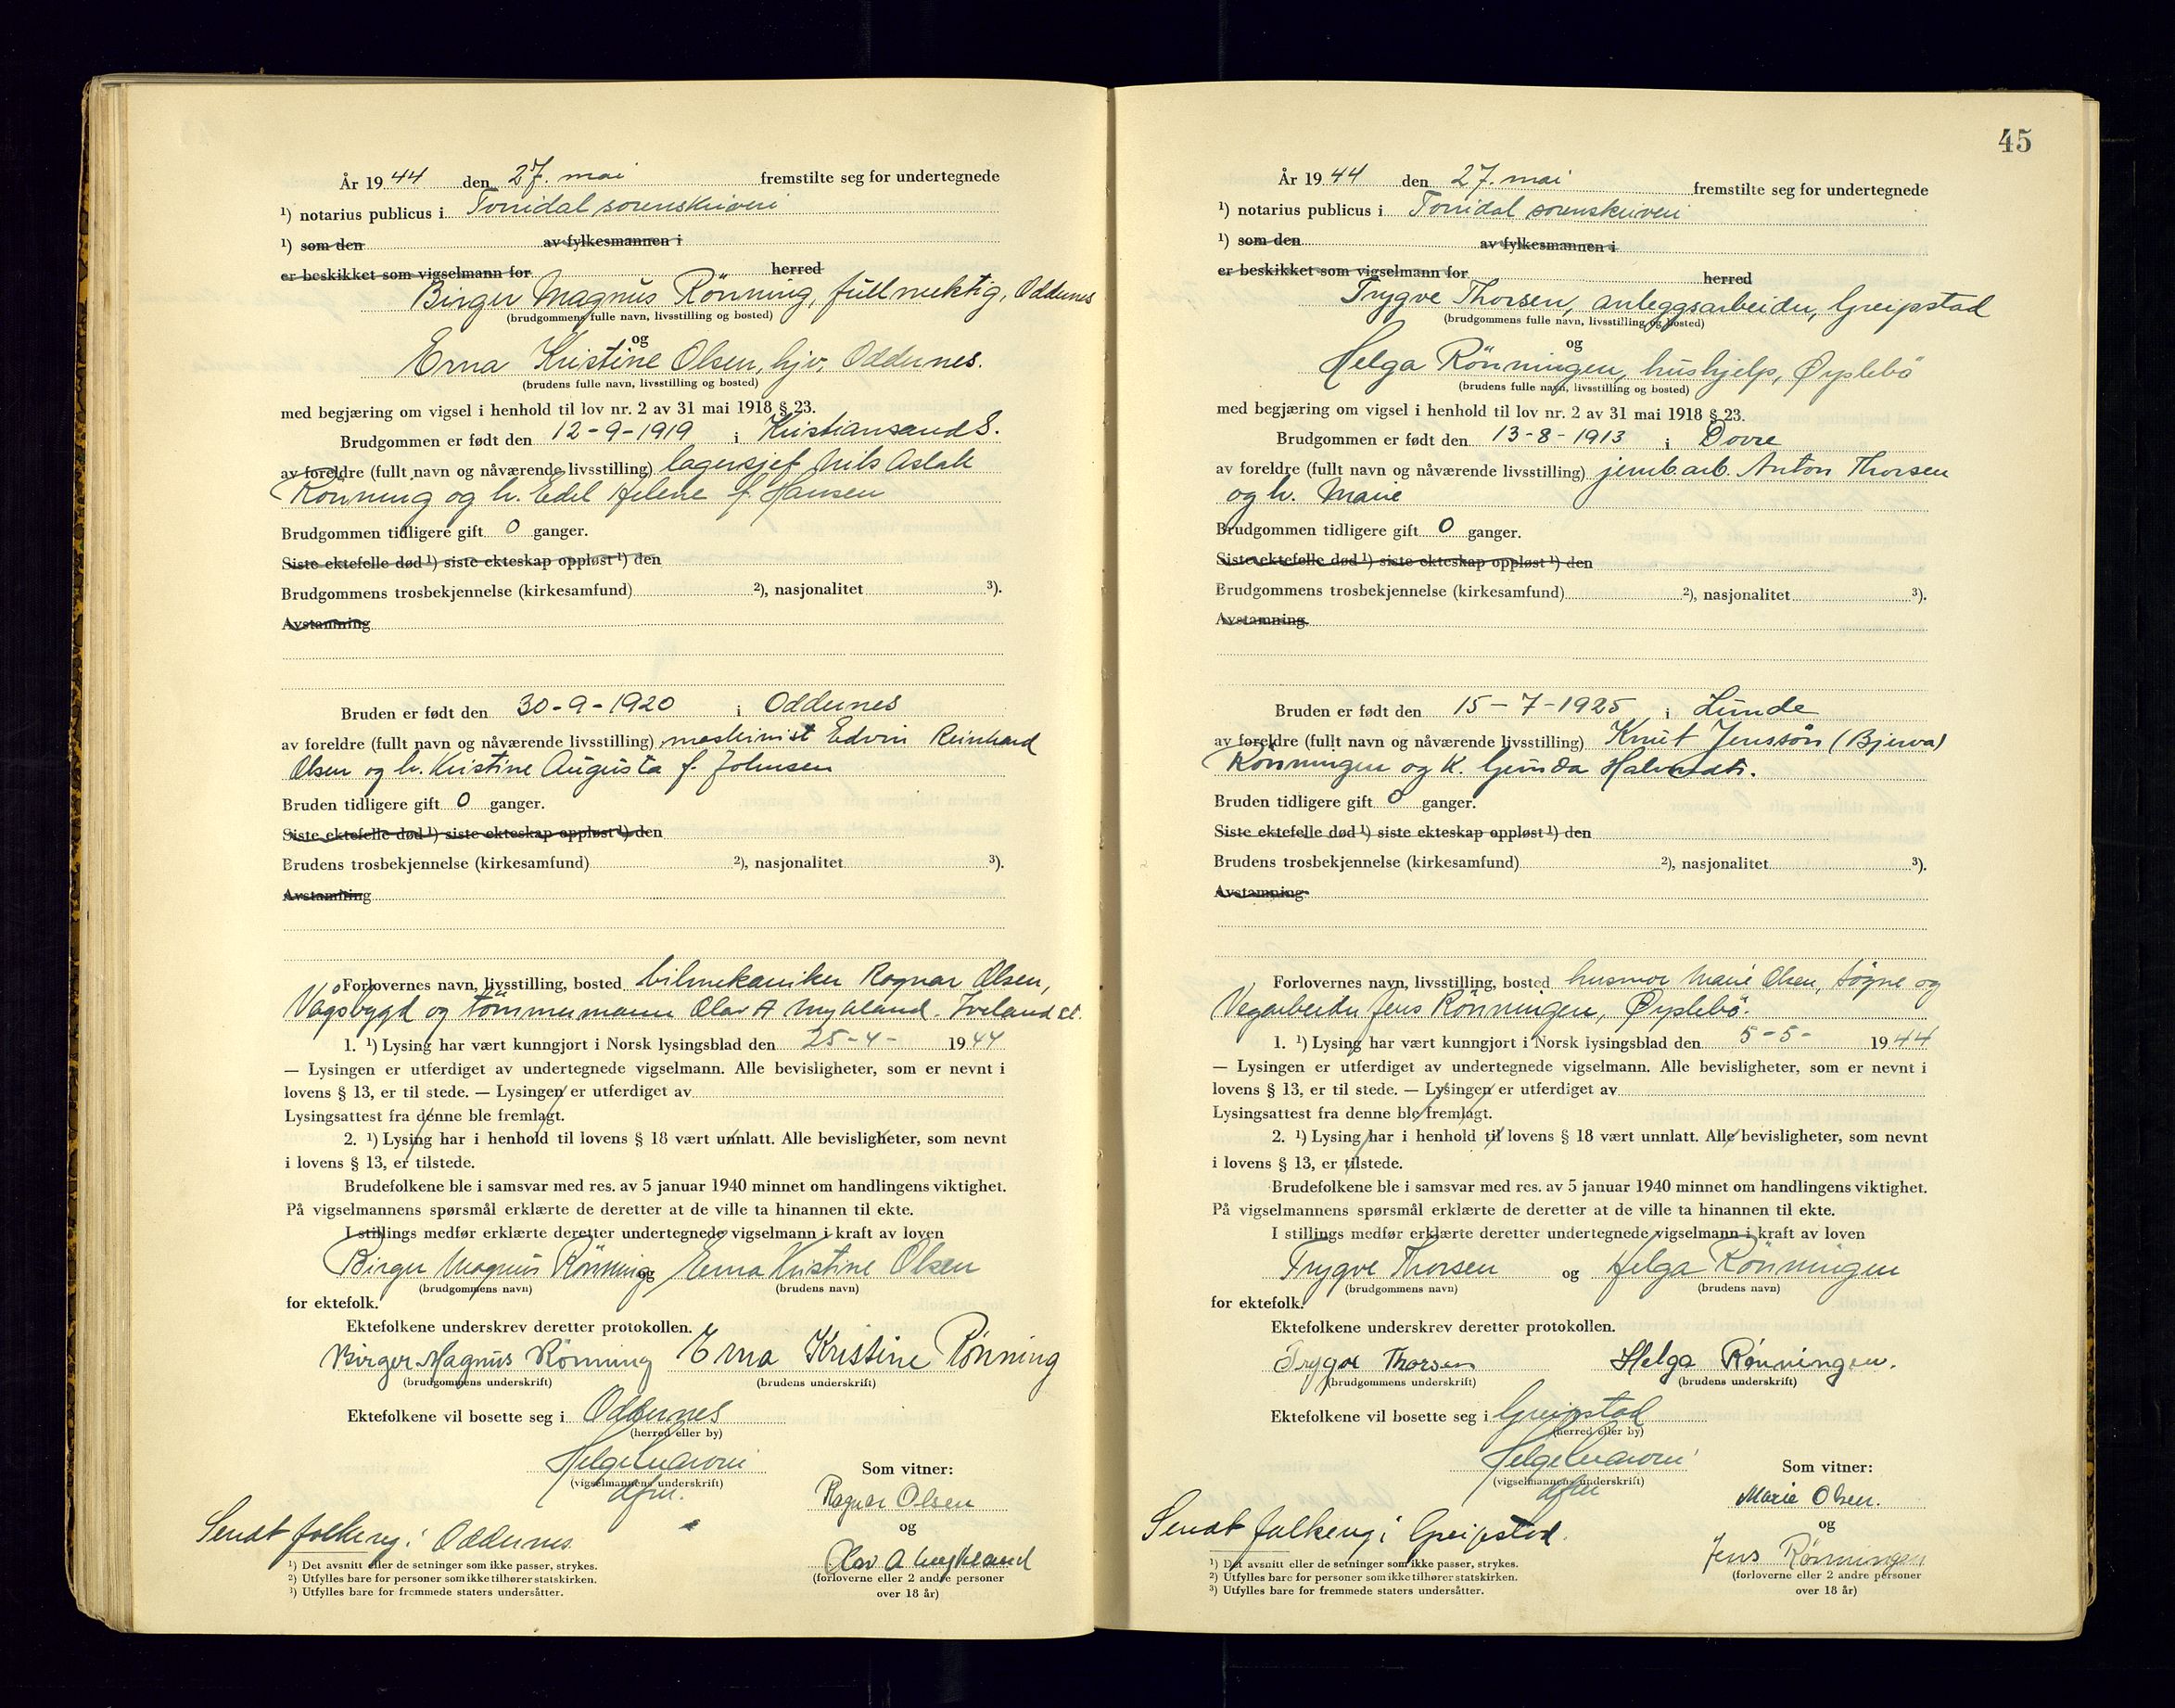 År 1944 den 27. mai fremstilte seg for undertegnede
¹) notarius publicus i Torridal sorenskriveri
¹) som den av fylkesmannen i
er beskikket som vigselmann for herred
Birger Magnus Rönning, fullmektig, Oddernes
(brudgommens fulle navn, livsstilling og bosted)
og
Erna Kristine Olsen, hjv, Oddernes.
(brudens fulle navn, livsstilling og bosted)
med begjæring om vigsel i henhold til lov nr. 2 av 31 mai 1918 § 23.
Brudgommen er født den 12-9-1919 i Kristiansand S.
av foreldre (fullt navn og nåværende livsstilling) lagersjef Nils Aslak
Rönning og h. Edel Helene f. Hansen
Brudgommen tidligere gift 0 ganger.
Siste ektefelle død ¹) siste ekteskap oppløst ¹) den
Brudgommens trosbekjennelse (kirkesamfund) ²), nasjonalitet ³).
Avstamning
Bruden er født den 30-9-1920 i Oddernes
av foreldre (fullt navn og nåværende livsstilling) maskinist Edvin Reinhard
Olsen og h. Kristine Augusta f. Johnsen
Bruden tidligere gift 0 ganger.
Siste ektefelle død ¹) siste ekteskap oppløst ¹) den
Brudens trosbekjennelse (kirkesamfund) ²), nasjonalitet ³).
Avstamning
Forlovernes navn, livsstilling, bosted bilmekaniker Ragnar Olsen,
Vågsbygd og tömmermann Olav A Mykland. Iveland st.
1. ¹) Lysing har vært kunngjort i Norsk lysingsblad den 25-4- 1944
— Lysingen er utferdiget av undertegnede vigselmann. Alle bevisligheter, som er nevnt i
lovens § 13, er til stede. — Lysingen er utferdiget av
Lysingsattest fra denne ble fremlagt.
2. ¹) Lysing har i henhold til lovens § 18 vært unnlatt. Alle bevisligheter, som nevnt
i lovens § 13, er tilstede.
Brudefolkene ble i samsvar med res. av 5 januar 1940 minnet om handlingens viktighet.
På vigselmannens spørsmål erklærte de deretter at de ville ta hinannen til ekte.
I stillings medfør erklærte deretter undertegnede vigselmann i kraft av loven
Birger Magnus Rönning og Erna Kristine Olsen
(brudgommens navn) (brudens navn)
for ektefolk.
Ektefolkene underskrev deretter protokollen.
Birger Magnus Rönning Erna Kristine Rønning
(brudgommens underskrift) (brudens underskrift)
Ektefolkene vil bosette seg i Oddernes
(herred eller by)
Som vitner:
(vigselmannens underskrift)
dfm.
Ragnar Olsen
og
Sendt folkereg. i Oddernes.
Olav A Mykland
(forloverne eller 2 andre personer
over 18 år)
¹) Det avsnitt eller de setninger som ikke passer, strykes.
²) Utfylles bare for personer som ikke tilhører statskirken.
³) Utfylles bare for fremmede staters undersåtter.
45
År 1944 den 27. mai fremstilte seg for undertegnede
¹) notarius publicus i Torridal sorenskriveri
¹) som den av fylkesmannen i
er beskikket som vigselmann for herred
Trygve Thorsen, anleggsarbeider, Greipstad
(brudgommens fulle navn, livsstilling og bosted)
og
Helga Rönningen, hushjelp, Øyslebö
(brudens fulle navn, livsstilling og bosted)
med begjæring om vigsel i henhold til lov nr. 2 av 31 mai 1918 § 23.
Brudgommen er født den 13-8-1913 i Dovre
av foreldre (fullt navn og nåværende livsstilling) jernb.arb. Anton Thorsen
og h. Marie
Brudgommen tidligere gift 0 ganger.
Siste ektefelle død ¹) siste ekteskap oppløst ¹) den
Brudgommens trosbekjennelse (kirkesamfund) ²), nasjonalitet ³).
Avstamning
Bruden er født den 15-7-1925 i Lunde
av foreldre (fullt navn og nåværende livsstilling) Knut Jenssön (Bjerva)
Rönningen og K. Gunda Halvordtr.
Bruden tidligere gift 0 ganger.
Siste ektefelle død ¹) siste ekteskap oppløst ¹) den
Brudens trosbekjennelse (kirkesamfund) ²), nasjonalitet ³).
Avstamning
Forlovernes navn, livsstilling, bosted husmor Marie Olsen, Søgne og
Vegarbeider Jens Rönningen, Øyslebö.
1. ¹) Lysing har vært kunngjort i Norsk lysingsblad den 5-5- 1944
— Lysingen er utferdiget av undertegnede vigselmann. Alle bevisligheter, som er nevnt i
lovens § 13, er til stede. — Lysingen er utferdiget av
Lysingsattest fra denne ble fremlagt.
2. ¹) Lysing har i henhold til lovens § 18 vært unnlatt. Alle bevisligheter, som nevnt
i lovens § 13, er tilstede.
Brudefolkene ble i samsvar med res. av 5 januar 1940 minnet om handlingens viktighet.
På vigselmannens spørsmål erklærte de deretter at de ville ta hinannen til ekte.
I stillings medfør erklærte deretter undertegnede vigselmann i kraft av loven
Trygve Thorsen og Helga Rönningen
(brudgommens navn) (brudens navn)
for ektefolk.
Ektefolkene underskrev deretter protokollen.
Trygve Thorsen Helga Rønningen.
(brudgommens underskrift) (brudens underskrift)
Ektefolkene vil bosette seg i Greipstad
(herred eller by)
Som vitner:
(vigselmannens underskrift)
dfm
Marie Olsen.
og
Sendt folkereg i Greipstad.
Jens Rønningen
(forloverne eller 2 andre personer
over 18 år)
¹) Det avsnitt eller de setninger som ikke passer, strykes.
²) Utfylles bare for personer som ikke tilhører statskirken.
³) Utfylles bare for fremmede staters undersåtter.